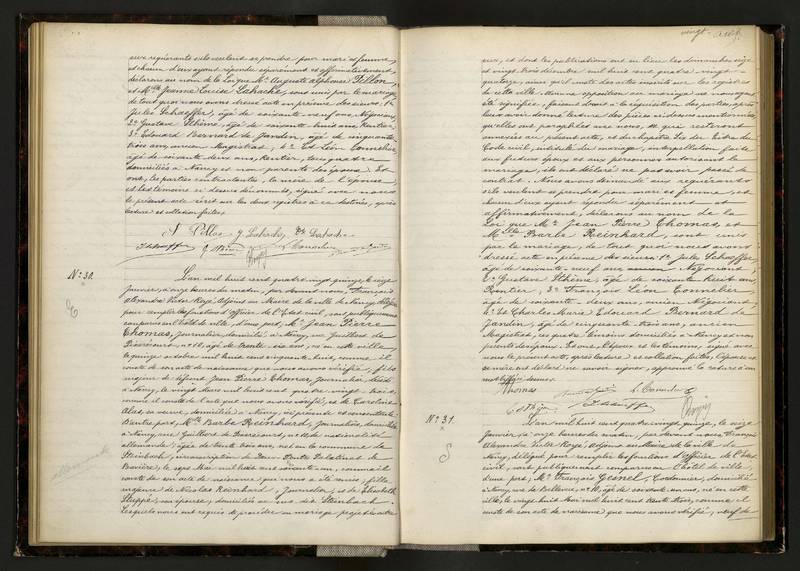 aux requérants s'ils veulent se prendre pour mari et femme,
et chacun d'eux ayant répondu séparément et affirmativement,
déclarons au nom de la Loi que Mr. Auguste Alphonse Pillon,
et Mlle Jeanne Louise Lahache, sont unis par le mariage,
de tout quoi nous avons dressé acte en présence des sieurs, 1º
Jules Schaeffer, âgé de soixante neuf ans, Négociant,
2º Gustave Hhène, âgé de soixante huit ans, Rentier,
3º Edouard Bernard de Jandin, âgé de cinquante-
trois ans, ancien Magistrat, 4º et Léon Connelier
âgé de soixante deux ans, Rentier, tous quatre
domiciliés à Nancy et non parents des époux. Et
ont, les parties contractantes, la mère de l'épouse
et les témoins ci dessus dénommés, signé avec nous
le présent acte écrit sur les deux registres à ce destinés, après
lecture et collation faites.
Nº 30.
L'an mil huit cent quatre vingt quinze, le seize
Janvier, à onze heures du matin, par devant nous, François
Alexandre Victor Royé, adjoint au Maire de la ville de Nancy, délégué
pour remplir les fonctions d'officier de l'Etat civil, sont publiquement
comparus en l'hôtel de ville, d'une part, Mr. Jean Pierre
Thomas, Journalier, domicilié à Nancy, rue Guilbert de
Pixérécourt, nº 18, âgé de trente six ans, né en cette ville
le quinze octobre mil huit cent cinquante huit, comme il
conste de son acte de naissance que nous avons vérifié, fils
majeur de défunt Jean Pierre Thomas, Journalier, décédé
à Nancy, le vingt Mars mil huit cent quatre vingt trois,
comme il conste de l'acte que nous avons vérifié, et de Caroline
sa veuve, domiciliée à Nancy, ici présente et consentante.
D'autre part, Mlle Barbe Reinhard, Journalière, domiciliée
à Nancy, rue Guilbert de Pixérécourt, nº 18, de nationalité
allemande, âgée de trente trois ans, née en la commune de
Steinbach, circonscription de Deux-Ponts Palatinat de
Bavière, le sept Mai mil huit cent soixante un, comme il
conste de son acte de naissance qui nous a été remis, fille
majeure de Nicolas Reinhard, Journalier, et de Elisabeth
son épouse, domiciliés au dit Steinbach.
Lesquels nous ont requis de procéder au mariage projeté entre
vingt-
eux, et dont les publications ont eu lieu les dimanches seize
et vingt trois décembre mil huit cent quatre-vingt-
quatorze, ainsi qu'il conste des actes inscrits sur les registres
de cette ville. Aucune opposition au mariage ne nous ayant
été signifiée, faisant droit à la réquisition des parties, après
leur avoir donné lecture des pièces ci dessus mentionnées
qu'elles ont paraphées avec nous, et qui resteront
annexées au présent acte, et du chapitre Six du titre du
Code civil, intitulé du mariage, interpellation faite
aux futurs époux et aux personnes autorisant le
mariage, ils ont déclaré ne pas avoir passé de
contrat. Nous avons demandé aux requérants
s'ils veulent se prendre pour mari et femme, et
chacun d'eux ayant répondu séparément et
affirmativement, déclarons au nom de la
Loi que Mr. Jean Pierre Thomas, et
Mlle Barbe Reinhard, sont unis
par le mariage, de tout quoi nous avons
dressé acte en présence des sieurs 1º Jules Schaeffer,
âgé de soixante-neuf ans, Négociant,
2º Gustave Hhène, âgé de soixante huit ans
Rentier, 3º François Léon Connelier
âgé de soixante-deux ans, ancien Négociant,
4º Et Charles Marie Edouard Bernard de
Jandin, âgé de cinquante trois ans, ancien
Magistrat, ces quatre témoins domiciliés à Nancy et non
parents des époux. Et ont l'époux et les témoins, signé avec
nous le présent acte, après lecture et collation faites, l'épouse et
la mère ont déclaré ne savoir signer
Thomas
Nº 31.
L'an mil huit cent quatre vingt quinze, le seize
Janvier, à onze heures du matin, par devant nous, François
Alexandre Victor Royé, adjoint au Maire de la ville de
Nancy, délégué pour remplir les fonctions d'Officier de l'Etat
civil, sont publiquement comparus en l'hôtel de ville,
d'une part, Mr. François Gesnel, Cordonnier, domicilié
à Nancy, rue de Bellevue, nº 10, âgé de soixante un ans, né en cette
ville, le vingt huit Mai mil huit cent trente trois, comme il
conste de son acte de naissance que nous avons vérifié, veuf de